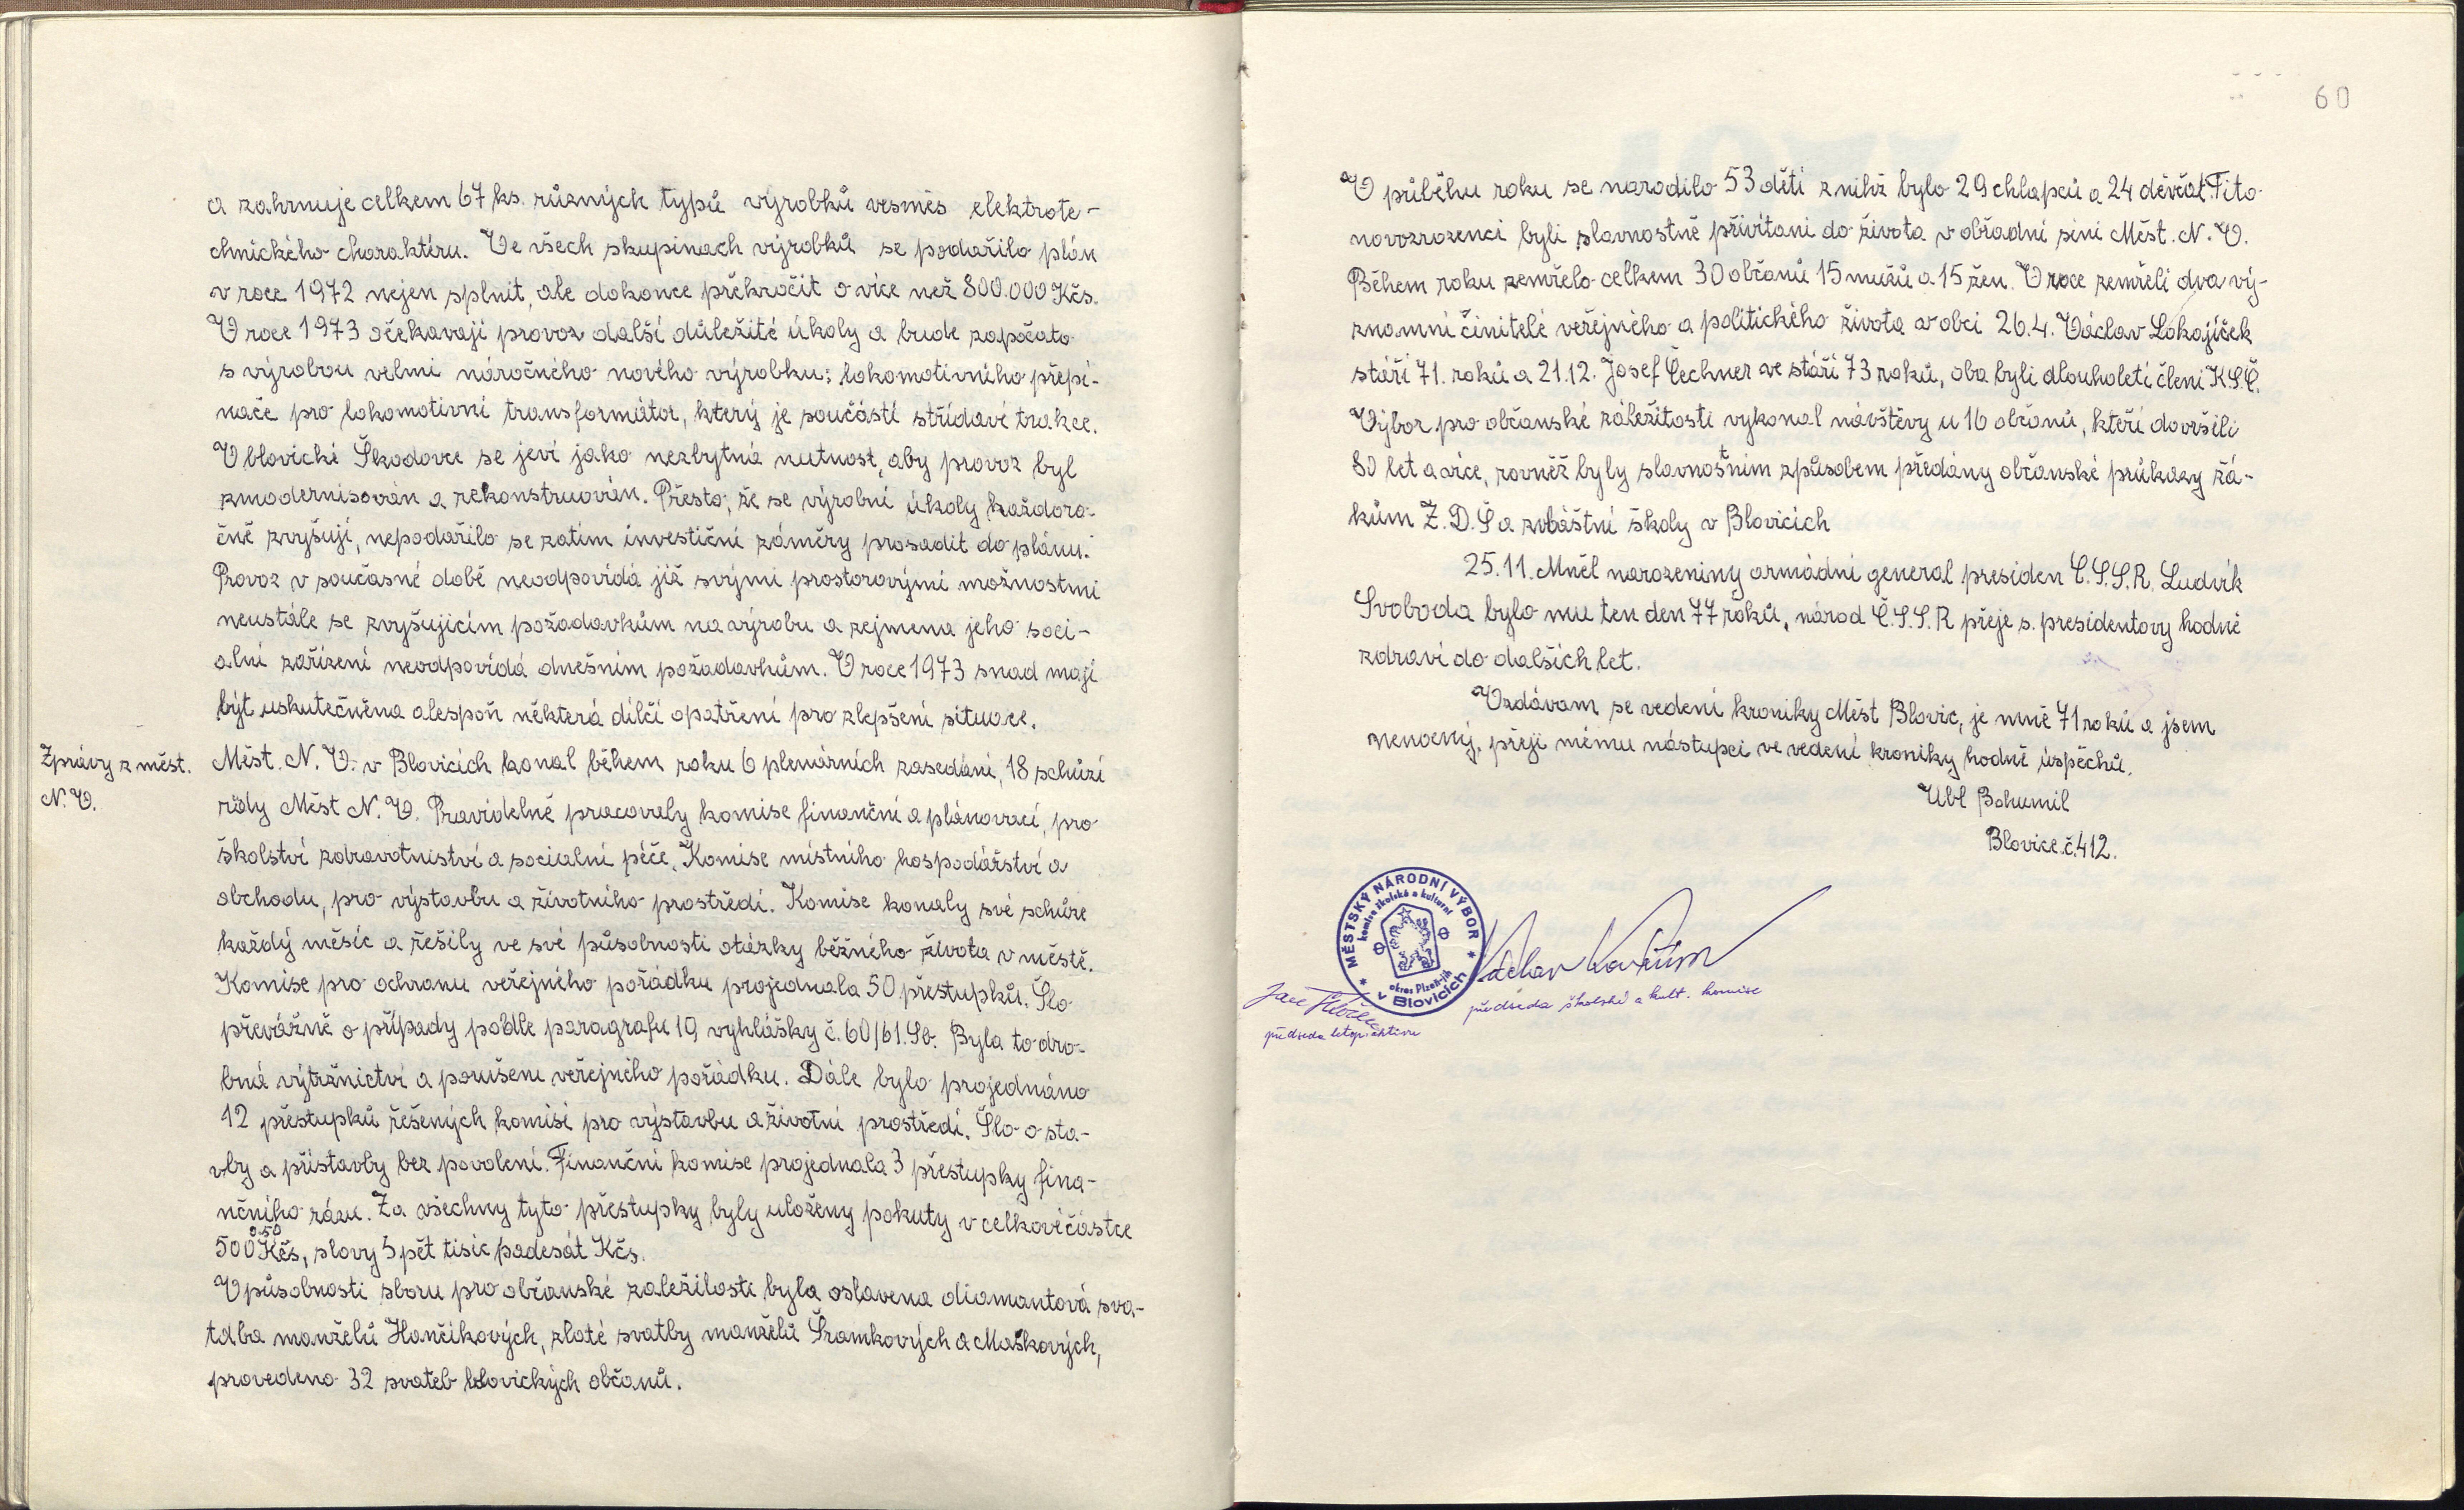 a zahrnuje celkem 67 ks. různých typů výrobků vesměs elektrote-
chnického charaktéru. Ve všech skupinach výrobků se podařilo plán
v roce 1972 nejen splnit, ale dokonce překročit o více než 800.000 Kčs.
V roce 1973 očekavají provoz další důležité úkoly a bude započato
s výrobou velmi náročného nového výrobku: lokomotivního přepí-
nače pro lokomotivní transformátor, který je součástí střídavé trakce.
V blovické Škodovce se jeví jako nezbytná nutnost, aby provoz byl
zmodernisován a rekonstruován. Přesto, že se výrobní úkoly každoro-
čně zvyšují, nepodařilo se zatím investiční záměry prosadit do plánu.
Provoz v současné době neodpovídá již svými prostorovými možnostmi
neustále se zvyšujícím požadavkům na výrobu a zejmena jeho soci-
alní zařízení neodpovídá dnešním požadavkům. V roce 1973 snad mají
být uskutečněna alespoň některá dílčí opatření pro zlepšení situace.
Zprávy z měst.
N.V.
Měst. N. V. v Blovicích konal během roku 6 plenárních zasedání, 18 schůzí
rady Měst N. V. Pravidelně pracovaly komise finanční a plánovací, pro
školství zdravotnictví a socialní péče. Komise místního hospodářství a
obchodu, pro výstavbu a životního prostředí. Komise konaly své schůze
každý měsíc a řešily ve své působnosti otázky běžného života v městě.
Komise pro ochranu veřejného pořádku projednala 50 přestupků. Šlo
převážně o případy podle paragrafu 19 vyhlášky č. 60/61. Sb. Byla to dro-
bná výtržnictví a porušení veřejného pořádku. Dále bylo projednáno
12 přestupků řešených komisí pro výstavbu a životní prostředí. Šlo o sta-
vby a přístavby bez povolení. Finanční komise projednala 3 přestupky fina-
nčního rázu. Za všechny tyto přestupky byly uloženy pokuty v celkové částce
0.50
500 Kčs, slovy 5 pět tisíc padesát Kčs.
V působnosti sboru pro občanské zaležitosti byla oslavena diamantová sva-
tdba manželů Hančíkových, zlaté svatby manželů Šramkových a Maškových,
provedeno 32 svateb blovických občanů.
60
V průběhu roku se narodilo 53 dětí z nihž bylo 29 chlapců a 24 děvčat. Tito
novozrozenci byli slavnostně přivítani do života v obřadní síni Měst. N. V.
Během roku zemřelo celkem 30 občanů 15 mužů a 15 žen. V roce zemřeli dva vý-
znamní činitelé veřejného a politického života v obci 26.4. Václav Lokajíček
stáří 71. roků a 21.12. Josef Čechner ve stáří 73 roků, oba byli dlouholetí členi K.S.Č.
Výbor pro občanské záležitosti vykonal návštěvy u 16 občanů, kteří dovršili
80 let a více, rovněž byly slavnostním způsobem předány občanské průkazy žá-
kům Z. D. Š a zvláštní školy v Blovicích
25.11. Měl narozeniny armádní general presiden Č.S.S.R. Ludvík
Svoboda bylo mu ten den 77 roků, národ Č.S.S.R přeje s. presidentovy hodně
zdraví do dalších let.
Vzdávam se vedení kroniky Měst Blovic, je mně 71 roků a jsem
nemocný, přeji mému nástupci ve vedení kroniky hodně úspěchů.
Ubl Bohumil
Blovice č. 412.
MĚSTSKÝ NÁRODNÍ VÝBOR
komise školská a kulturní
okres Plzeň-jih
v Blovicích
Václav
předseda školské a kult. komise
předseda letop. aktivu